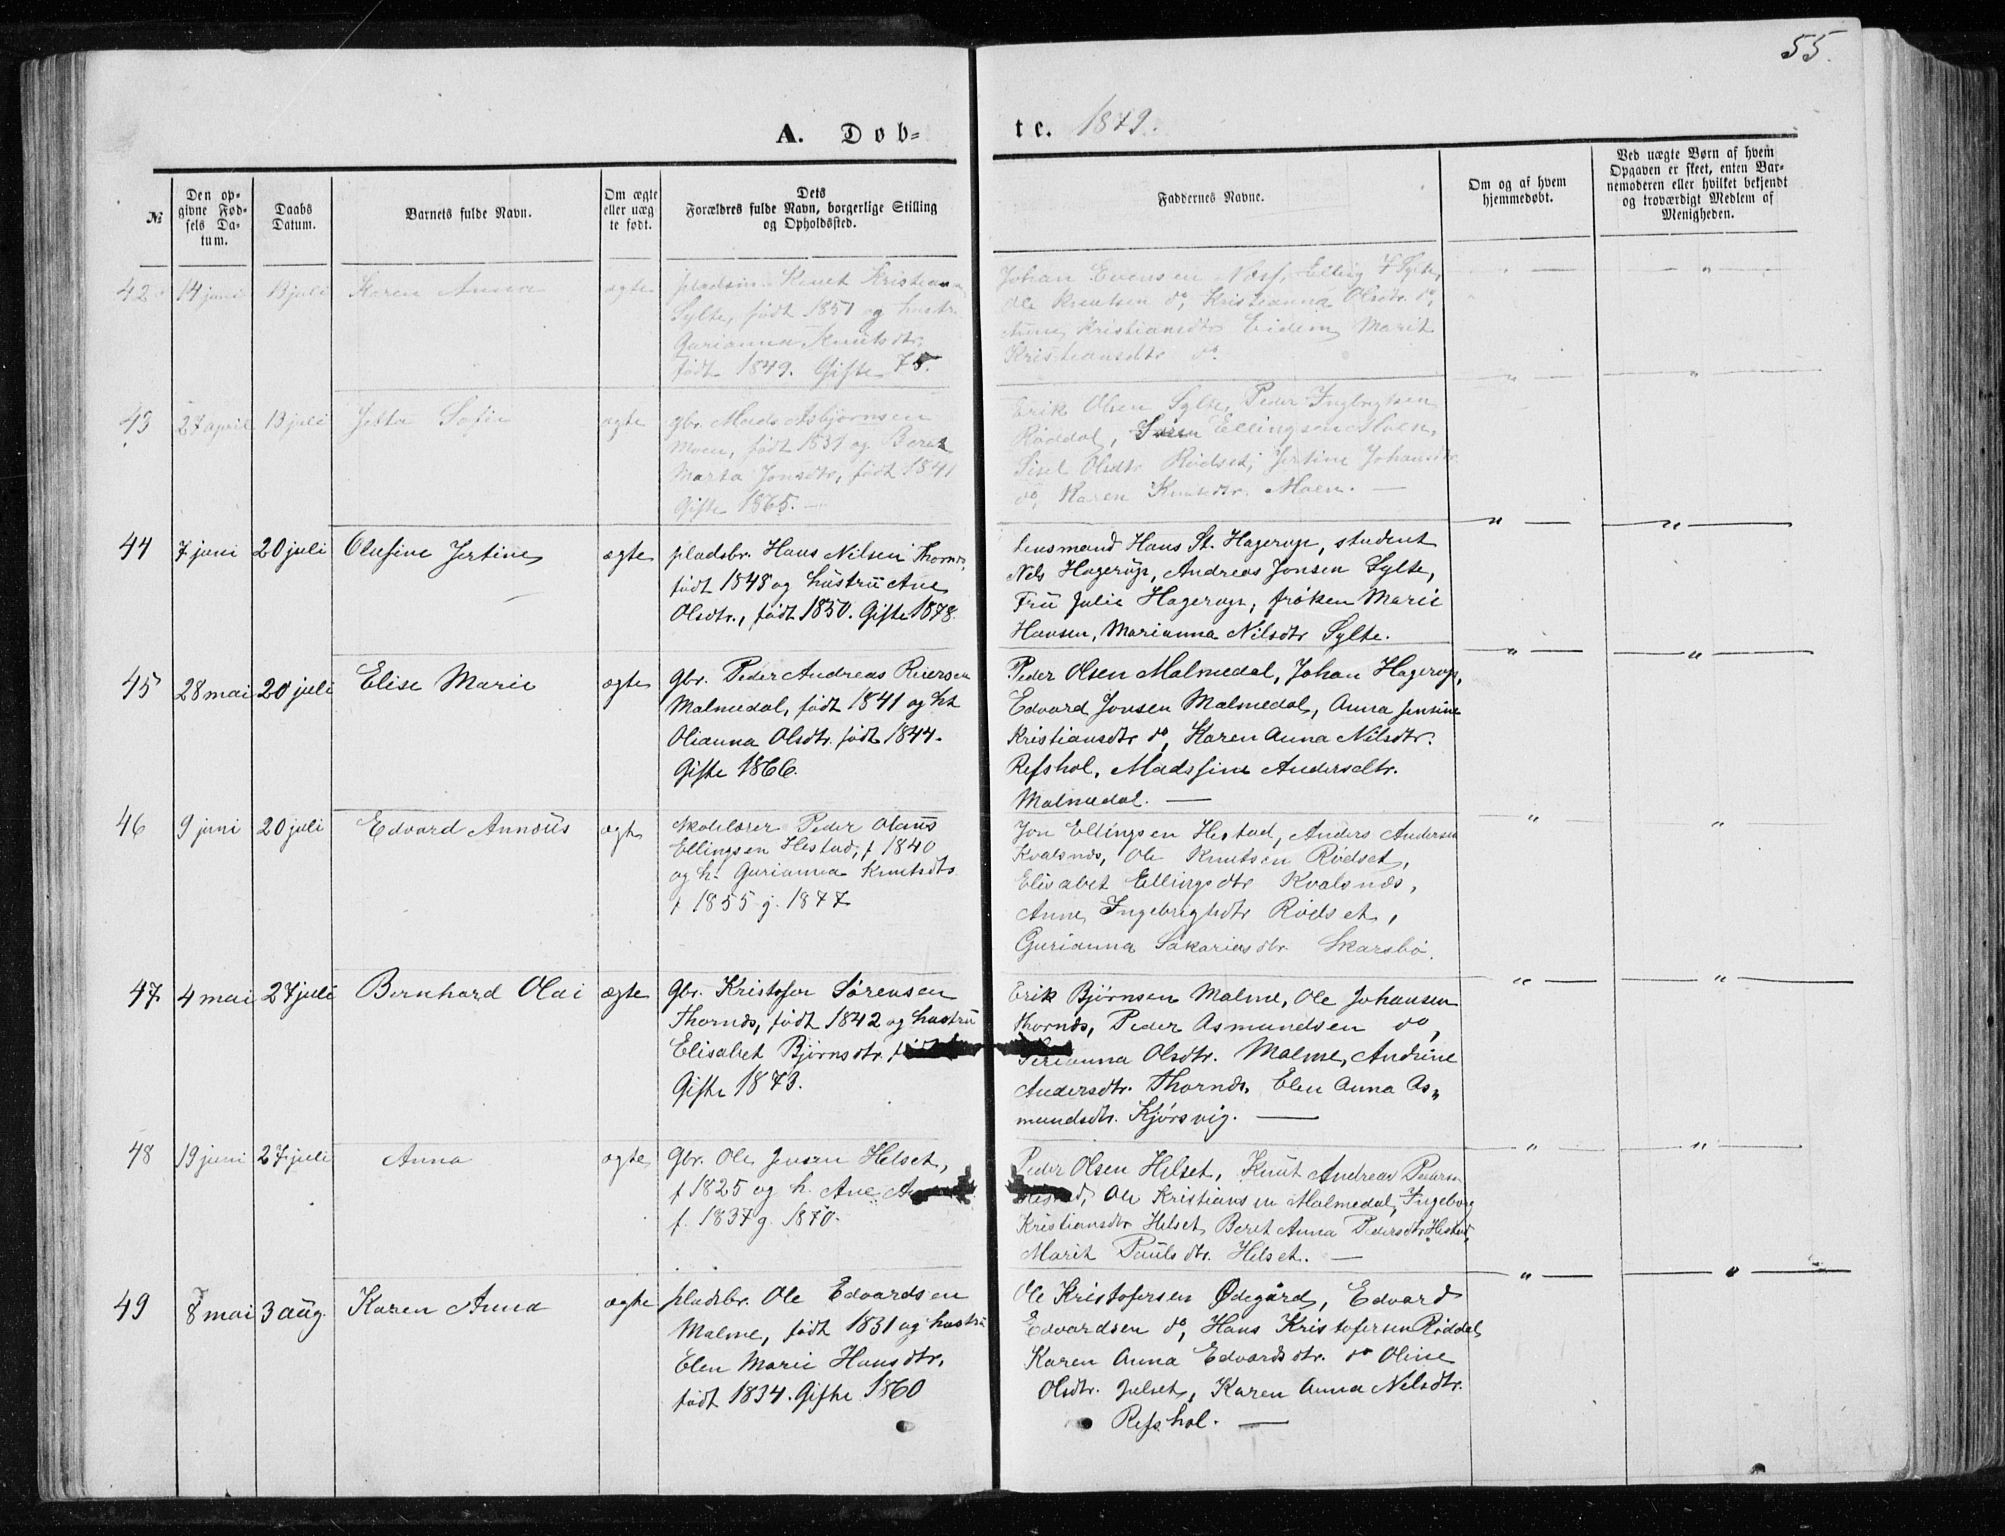 55.
A. Døb-
te. 1879.
№
Den op-
givne Fød-
sels Da-
tum.
Daabs
Datum.
Barnets fulde Navn.
Om ægte
eller uæg
te født.
Dets
Forældres fulde Navn, borgerlige Stilling
og Opholdssted.
Faddernes Navne.
Om og af hvem
hjemmedøbt.
Ved uægte Børn af hvem
Opgaven er skeet, enten Bar-
nemoderen eller hvilket bekjendt
og troværdigt Medlem af
Menigheden.
42 14 juni 13 juli Karen Anna ægte
pladsm. Knut Kristians
Sylte, født 1851 og hustr.
Gurianna Knutsdtr.
født 1849. Gifte 75.
Johan Evensen Elling Sylte,
Ole Knutsen do, Kristianna Olsdtr. do,
Anne Kristiansdtr Eidem, Marit
Kristiansdtr do.
43 27 april 13 juli Jetta Sofie ægte
gbr. Mads Asbjørnsen
Moen, født 1831 og Beret
Marta Jonsdtr, født 1841
Gifte 1865. —
Erik Olsen Sylte, Peder Ingbrigtsen
Røddal, Ellingsen Moen,
Sisel Olsdtr Rødset, Jertine Johansdtr
do, Karen Knutsdtr. Moen. —
44 7 juni 20 juli Olufine Jertine ægte
pladsbr. Hans Nilsen Thornæs,
født 1848 og hustru Ane
Olsdtr., født 1850. Gifte 1878.
Lensmand Hans St. Hagerup, student
Nels Hagerup, Andreas Jonsen Sylte,
Fru Julie Hagerup, frøken Marie
Hansen, Marianna Nilsdtr Sylte.
45 28 mai 20 juli Elise Marie ægte
gbr. Peder Andreas Reiersen
Malmedal, født 1841 og h.
Olianna Olsdtr. født 1844.
Gifte 1866.
Peder Olsen Malmedal, Johan Hagerup,
Edvard Jonsen Malmedal, Anna Jensine
Kristiansdtr do, Karen Anna Nilsdtr.
Refshol, Madssine Andersdtr.
Malmedal. —
46 9 juni 20 juli Edvard Annæus ægte
skolelærer Peder Olaus
Ellingsen Hestad, f 1840
og h. Gurianna Knutsdtr
f 1855 g. 1877
Jon Ellingsen Hestad, Anders Andersen
Kvalsnæs, Ole Knutsen Rødset,
Elisabet Ellingsdtr Kvalsnæs,
Anne Ingebrigtsdtr Rødset,
Gurianna Sakariasdtr. Skarsbø.
47 4 mai 27 juli Bernhard Olai ægte
gbr. Kristofer Sørensen
Thornæs, født 1842 og hustru
Elisabet Bjørnsdtr.
Gifte 1873.
Erik Bjørnsen Malme, Ole Johansen
Thornæs, Peder Asmundsen do,
Olsdtr. Malme, Andrine
Andersdtr. Thornæs, Elen Anna As„
mundsdtr. Kjørsvig. —
48 19 juni 27 juli Anna ægte
gbr. Ole Jensen Helset,
f 1825 og h. Ane
f. 1837 g. 1870.
Peder Olsen Helset, Knut Andreas Peders
Ole Kristiansen Malmedal, Ingeborg
Kristiansdtr Helset, Beret Anna Pedersdtr Hestad,
Marit Paulsdtr. Helset. —
49 8 mai 3 aug. Karen Anna ægte
pladsbr. Ole Edvardsen
Malme, født 1831 og hustru
Elen Marie Hansdtr.
født 1834. Gifte 1860
Ole Kristofersen Ødegård, Edvard
Edvardsen do, Hans Kristofersen Røddal
Karen Anna Edvardsdtr. do Oline
Olsdtr. Julset, Karen Anna Nilsdtr.
Refshol. —